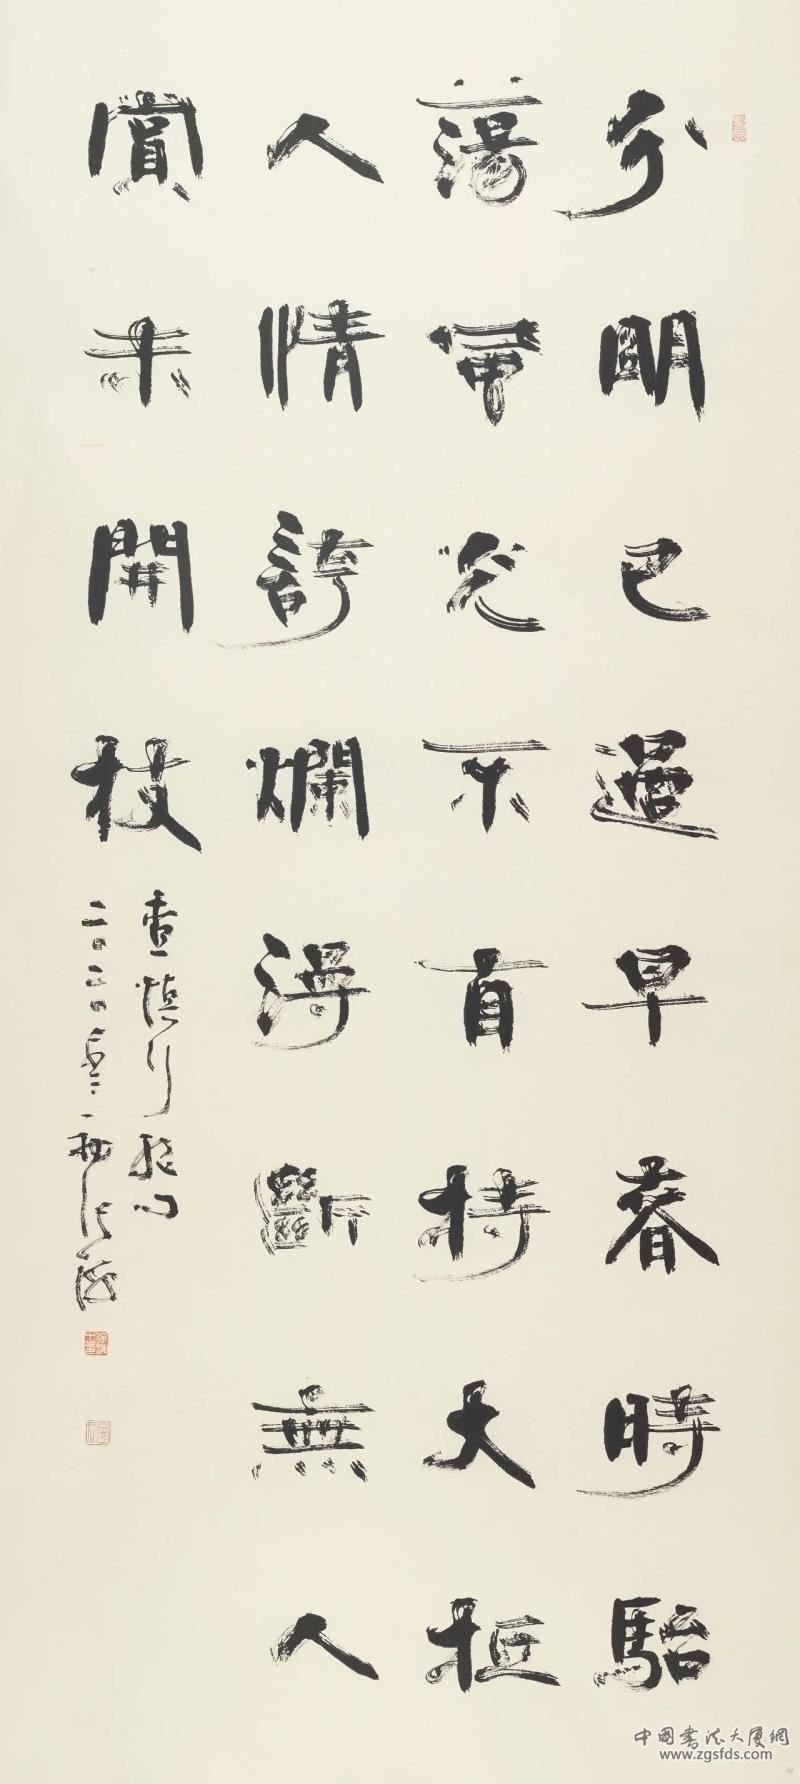 分明已過早春時駘
蕩風光不自持大抵
人情誇爛漫斷無人
賞未開枝
查慎行
二〇二〇年 張海
中國書法大厦網
www.zgsfds.com